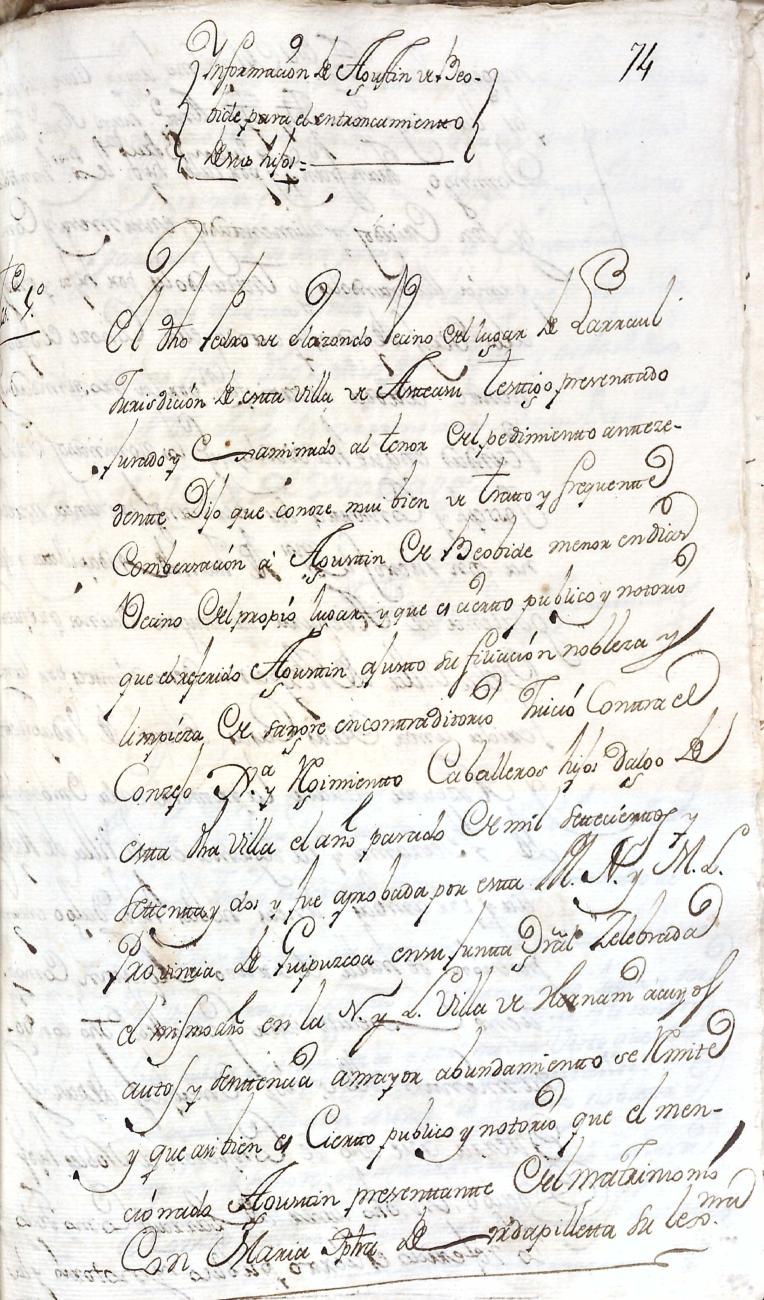 74
Informacion de Agustin de Beo-
bide para el entroncamientto
de sus hijos =
tgo 1º
El dho Pedro de elizondo Vecino del lugar de Larraul
Jurisdición de esta Villa de Asteasu testtigo presenttado
jurado y Examinado al tenor del pedimientto anteze-
dentte Dijo que conoze mui bien de tratto y frequentte
Combersación á Agusttin de Beobide menor en dias
Vecino del propio lugar, y que es ciertto publico y notorio
que el referido Agousttin ajustto su filiación nobleza y
limpieza de sangre en conttraditorio Juició Conttra el
Conzejo Jª y Rejimientto Caballeros hijos dalgo de
estta dha Villa el año pasado de mil settecienttos y
settentta y dos y fue aprobada por estta M. N. y M. L.
Provincia de Guipuzcoa en su Juntta Gral Zelebrada
el mismo año en la N. y L. Villa de Hernani a cuyos
autos y senttencia a mayor abundamientto se Remite
y que asi bien es Ciertto publico y nottorio que el men-
cionado Agousttin presenttantte del matrimonio
Con Maria Jpha de Andapilletta su lex.ma